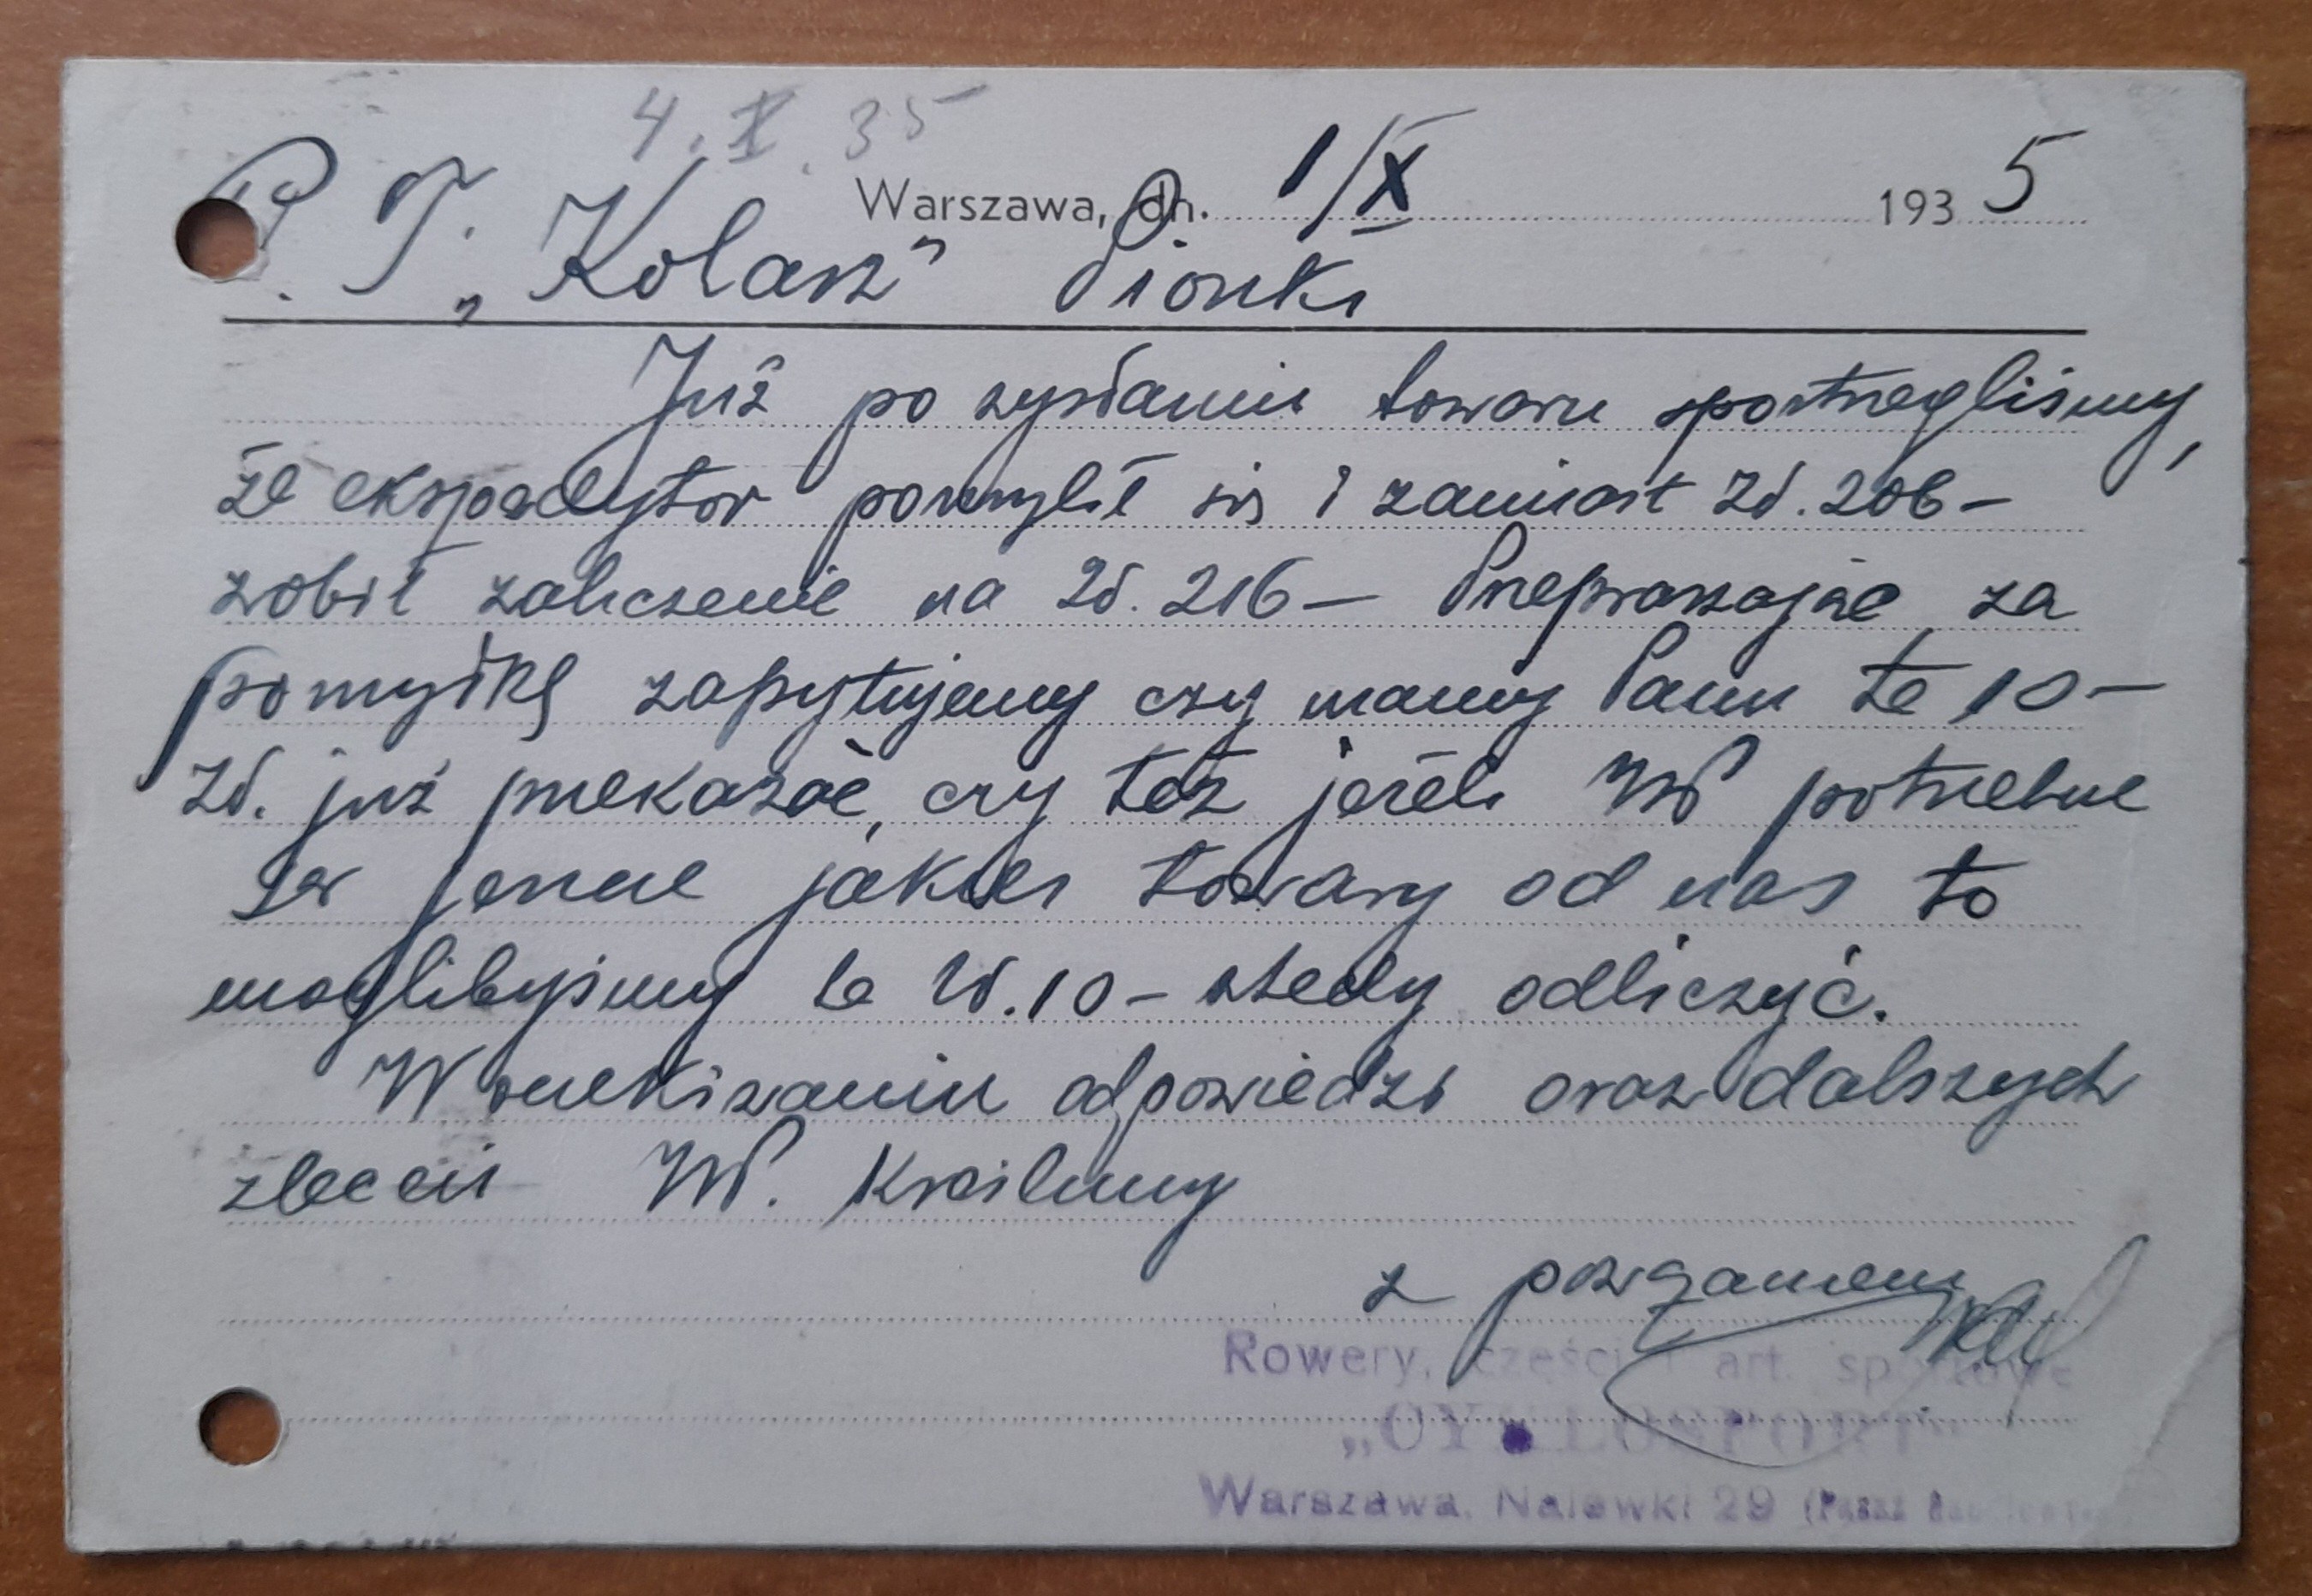 4. X. 35
Warszawa, dn. 1/X 1935
P. T. „Kolarz" Pionki
Już po wysłaniu towaru spostrzegliśmy,
że ekspedytor pomylił się i zamiast Zł. 206 –
zrobił zaliczenie na Zł. 216 – Przepraszając za
pomyłkę zapytujemy czy mamy Panu te 10 –
Zł. już przekazać, czy też jeżeli WP potrzebne
są jeszcze jakieś towary od nas to
moglibyśmy te Zł. 10 – wtedy odliczyć.
W oczekiwaniu odpowiedzi oraz dalszych
zleceń WP. kreślimy
z poważaniem
Rowery, części i art. sportowe
„CYKLOSPORT"
Warszawa, Nalewki 29